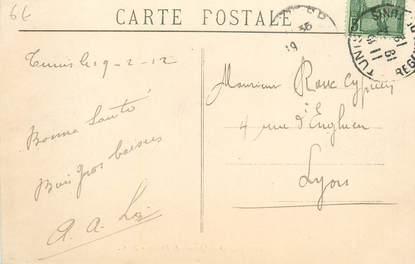 66
CARTE POSTALE
Tunis le 9-2-12
Bonne Santé
Bons gros baisers
A. A.
Monsieur
4 rue d'Enghien
Lyon